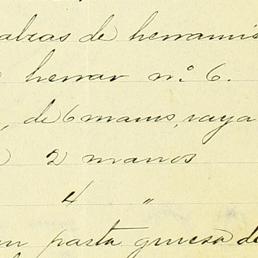 de herramis
herrar n.º 6.
, de 6 manos, raya
2 manos
4 "
pasta gruesa de